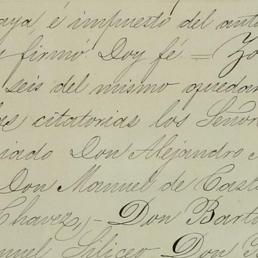 aya é impuesto del ante
firmó. Doy fé =
seis del mismo quedar
citatorias los Señor
ciado Don Alejandro
Don Manuel de Cast
Chavez, - Don Barto
nuel Siliceo Don